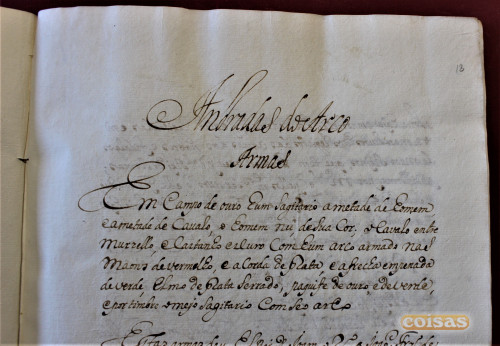 18
Andradas do Arco
Armas
Em Campo de ouro hum Sagitario ametade de homem
e ametade de Cavalo, o homem nu de sua Cor, o Cavalo entre
Murzello, e Castanho e Escuro Com hum arco armado nas
Mãos de vermelho, e a Corda de Prata, e a frecha empenada
de verde Elmo de prata Serrado, paquife de ouro e de verde,
e por timbre o mejo Sagitario Com Seo arco
coisas